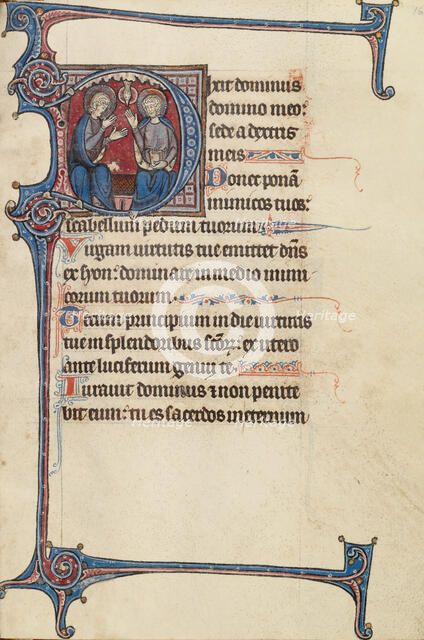 Dixit dominus
domino meo:
sede a dextris
meis
Donec ponā
inimicos tuos:
scabellum pedum tuorum.
Virgam virtutis tue emittet dn̄s
ex syon: dominare in medio inimi
corum tuorum.
Tecum principium in die virtutis
tue in splendoribus sc̄or̄: ex utero
ante luciferum genui te.
Iuravit dominus & non penite
bit eum: tu es sacerdos in eternum
Heritage
Heritage
Heritage
Heritage
Heritage